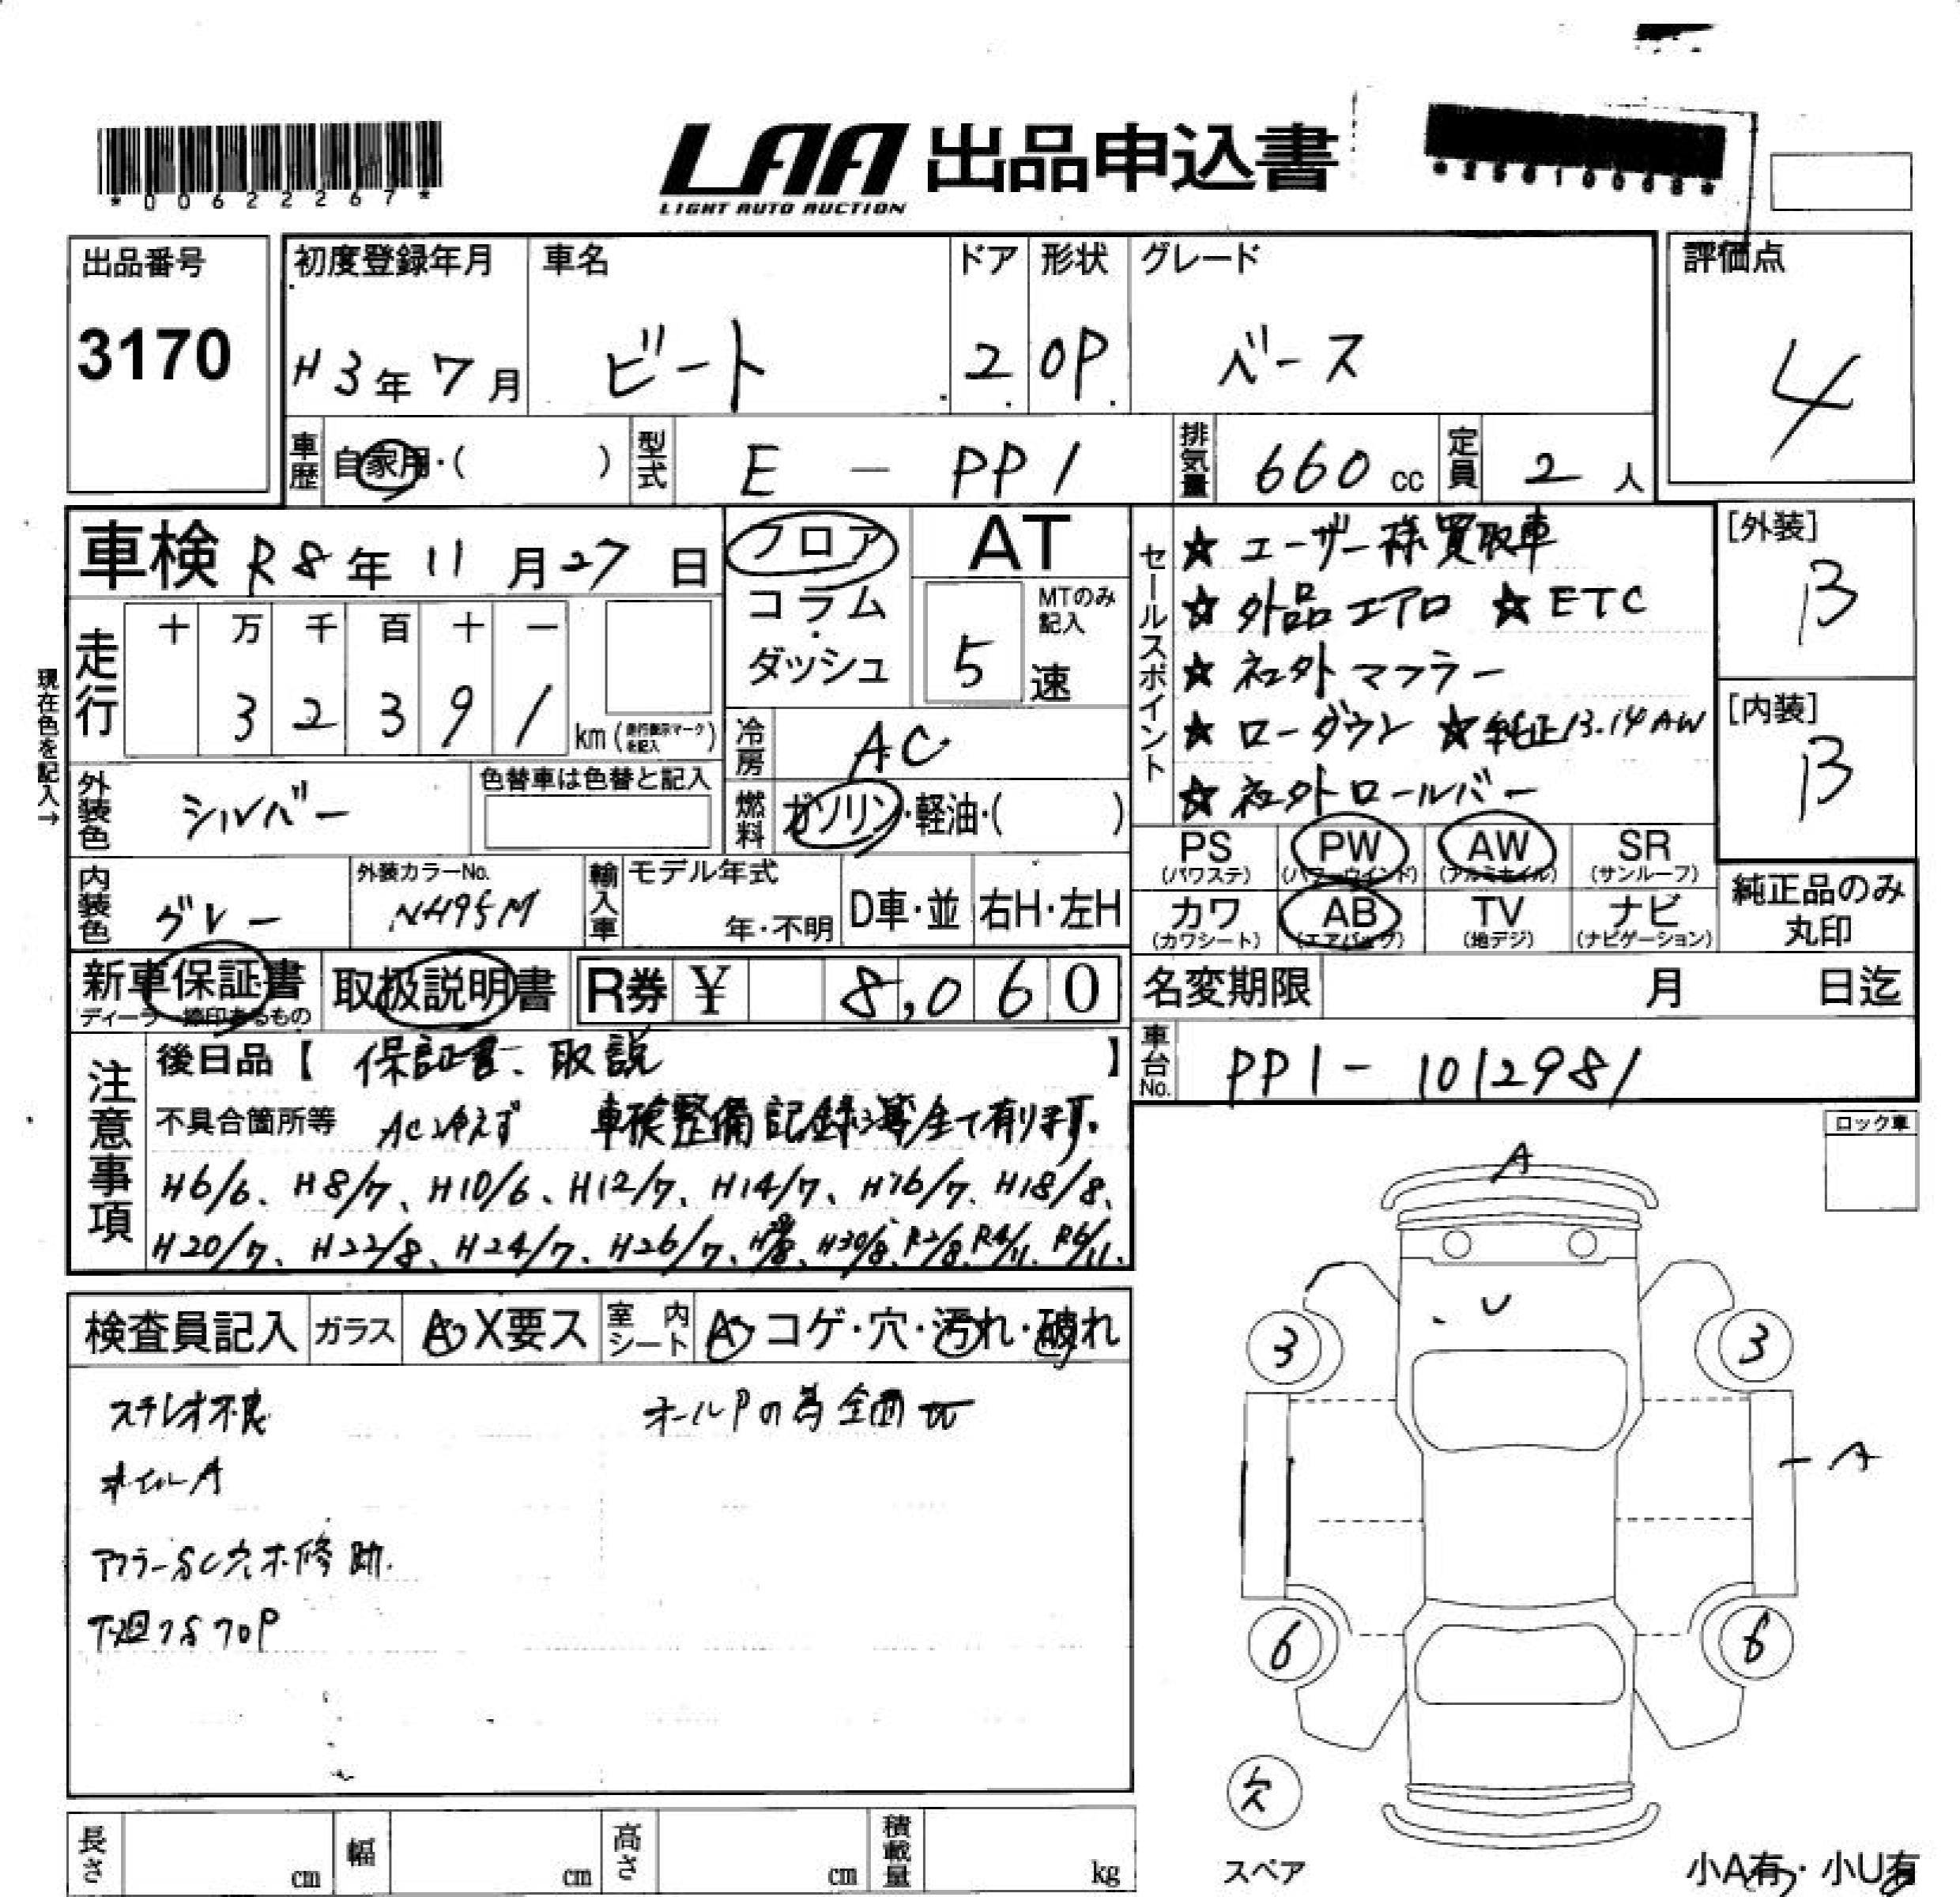 *00622267*
LAA 出品申込書
LIGHT AUTO AUCTION
出品番号
3170
初度登録年月 車名 ドア 形状 グレード
H3年7月 ビート 2 OP ベース
評価点
4
車歴 自家用・( ) 型式 E - PP1 排気量 660cc 定員 2人
車検 R8年11月27日
フロア コラム・ダッシュ
AT
MTのみ記入
5速
走行
十 万 千 百 十 一
3 2 3 9 1 km (走行表示マークを記入)
現在色を記入→
冷房 AC
外装色 シルバー
色替車は色替と記入
燃料 ガソリン・軽油・( )
内装色 グレー
外装カラーNo. NH95M
輸入車 モデル年式 年・不明 D車・並 右H・左H
セールスポイント
☆ ユーザー様買取車
☆ 外品エアロ ☆ ETC
☆ 社外マフラー
☆ ローダウン ☆ 純正13.14AW
☆ 社外ロールバー
[外装]
B
[内装]
B
PS (パワステ) PW (パワーウインド) AW (アルミホイル) SR (サンルーフ)
カワ (カワシート) AB (エアバッグ) TV (地デジ) ナビ (ナビゲーション)
純正品のみ丸印
新車保証書 取扱説明書 R券 ¥ 8,060
ディーラー捺印あるもの
名変期限 月 日迄
車台No. PP1-1012981
注意事項
後日品【 保証書、取説 】
不具合箇所等 AC冷えず 車検整備記録簿全て有ります。
H6/6、H8/7、H10/6、H12/7、H14/7、H16/7、H18/8、
H20/7、H22/8、H24/7、H26/7、H28/8、H30/8、R2/8、R4/11、R6/11、
ロック車
検査員記入 ガラス A・X要ス 室内シート A・コゲ・穴・汚れ・破れ
ステレオ不良 オールPの為全面
ホイルA
マフラーSC穴
下廻りS
A
U
3 3
A
6 6
欠
スペア
小A有・小U有
長さ cm 幅 cm 高さ cm 積載量 kg